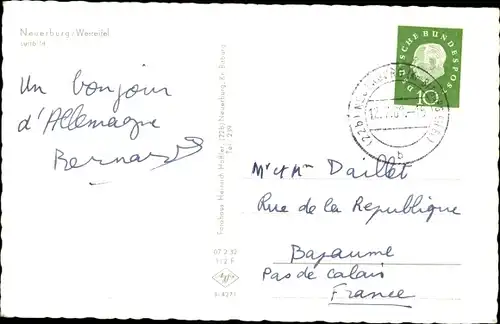 Neuerburg/Westeifel
Un bonjour
d'Allemagne
Bernard
Fotohaus Heinrich Heißler, (22b) Neuerburg, Kr. Bitburg
Tel. 239
Agfa
DEUTSCHE BUNDESPOST
10
(22b)
b
Mr et Mme Daillet
Rue de la Republique
Bapaume
Pas de Calais
France